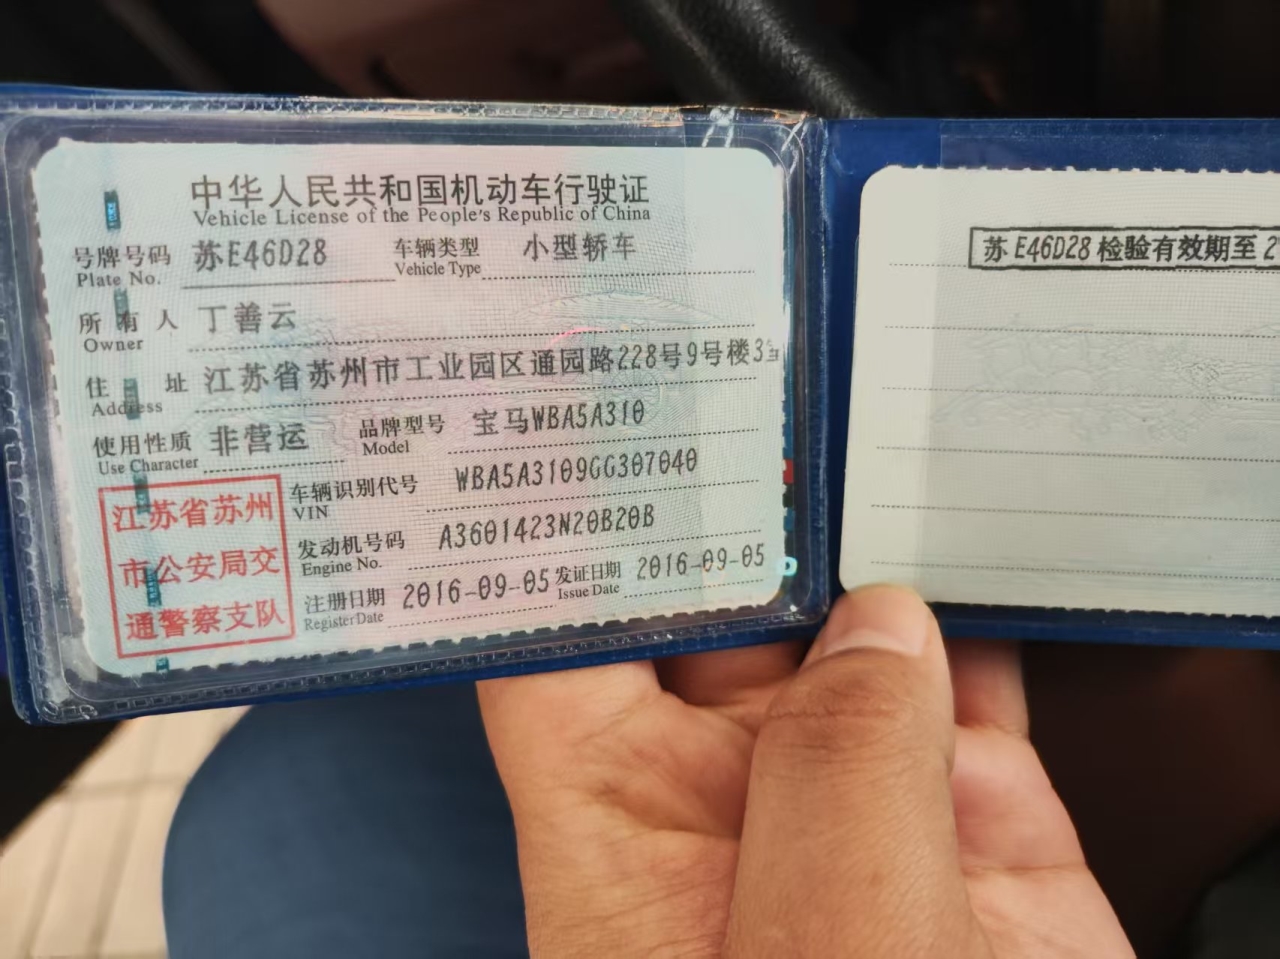 中华人民共和国机动车行驶证
Vehicle License of the People's Republic of China
号牌号码 苏E46D28 车辆类型 小型轿车
Plate No. Vehicle Type
所有人 丁善云
Owner
住址 江苏省苏州市工业园区通园路228号9号楼3
Address
使用性质 非营运 品牌型号 宝马WBA5A310
Use Character Model
车辆识别代号 WBA5A3109GG307040
VIN
发动机号码 A3601423N20B20B
Engine No.
注册日期 2016-09-05 发证日期 2016-09-05
Register Date Issue Date
江苏省苏州
市公安局交
通警察支队
苏E46D28 检验有效期至 2